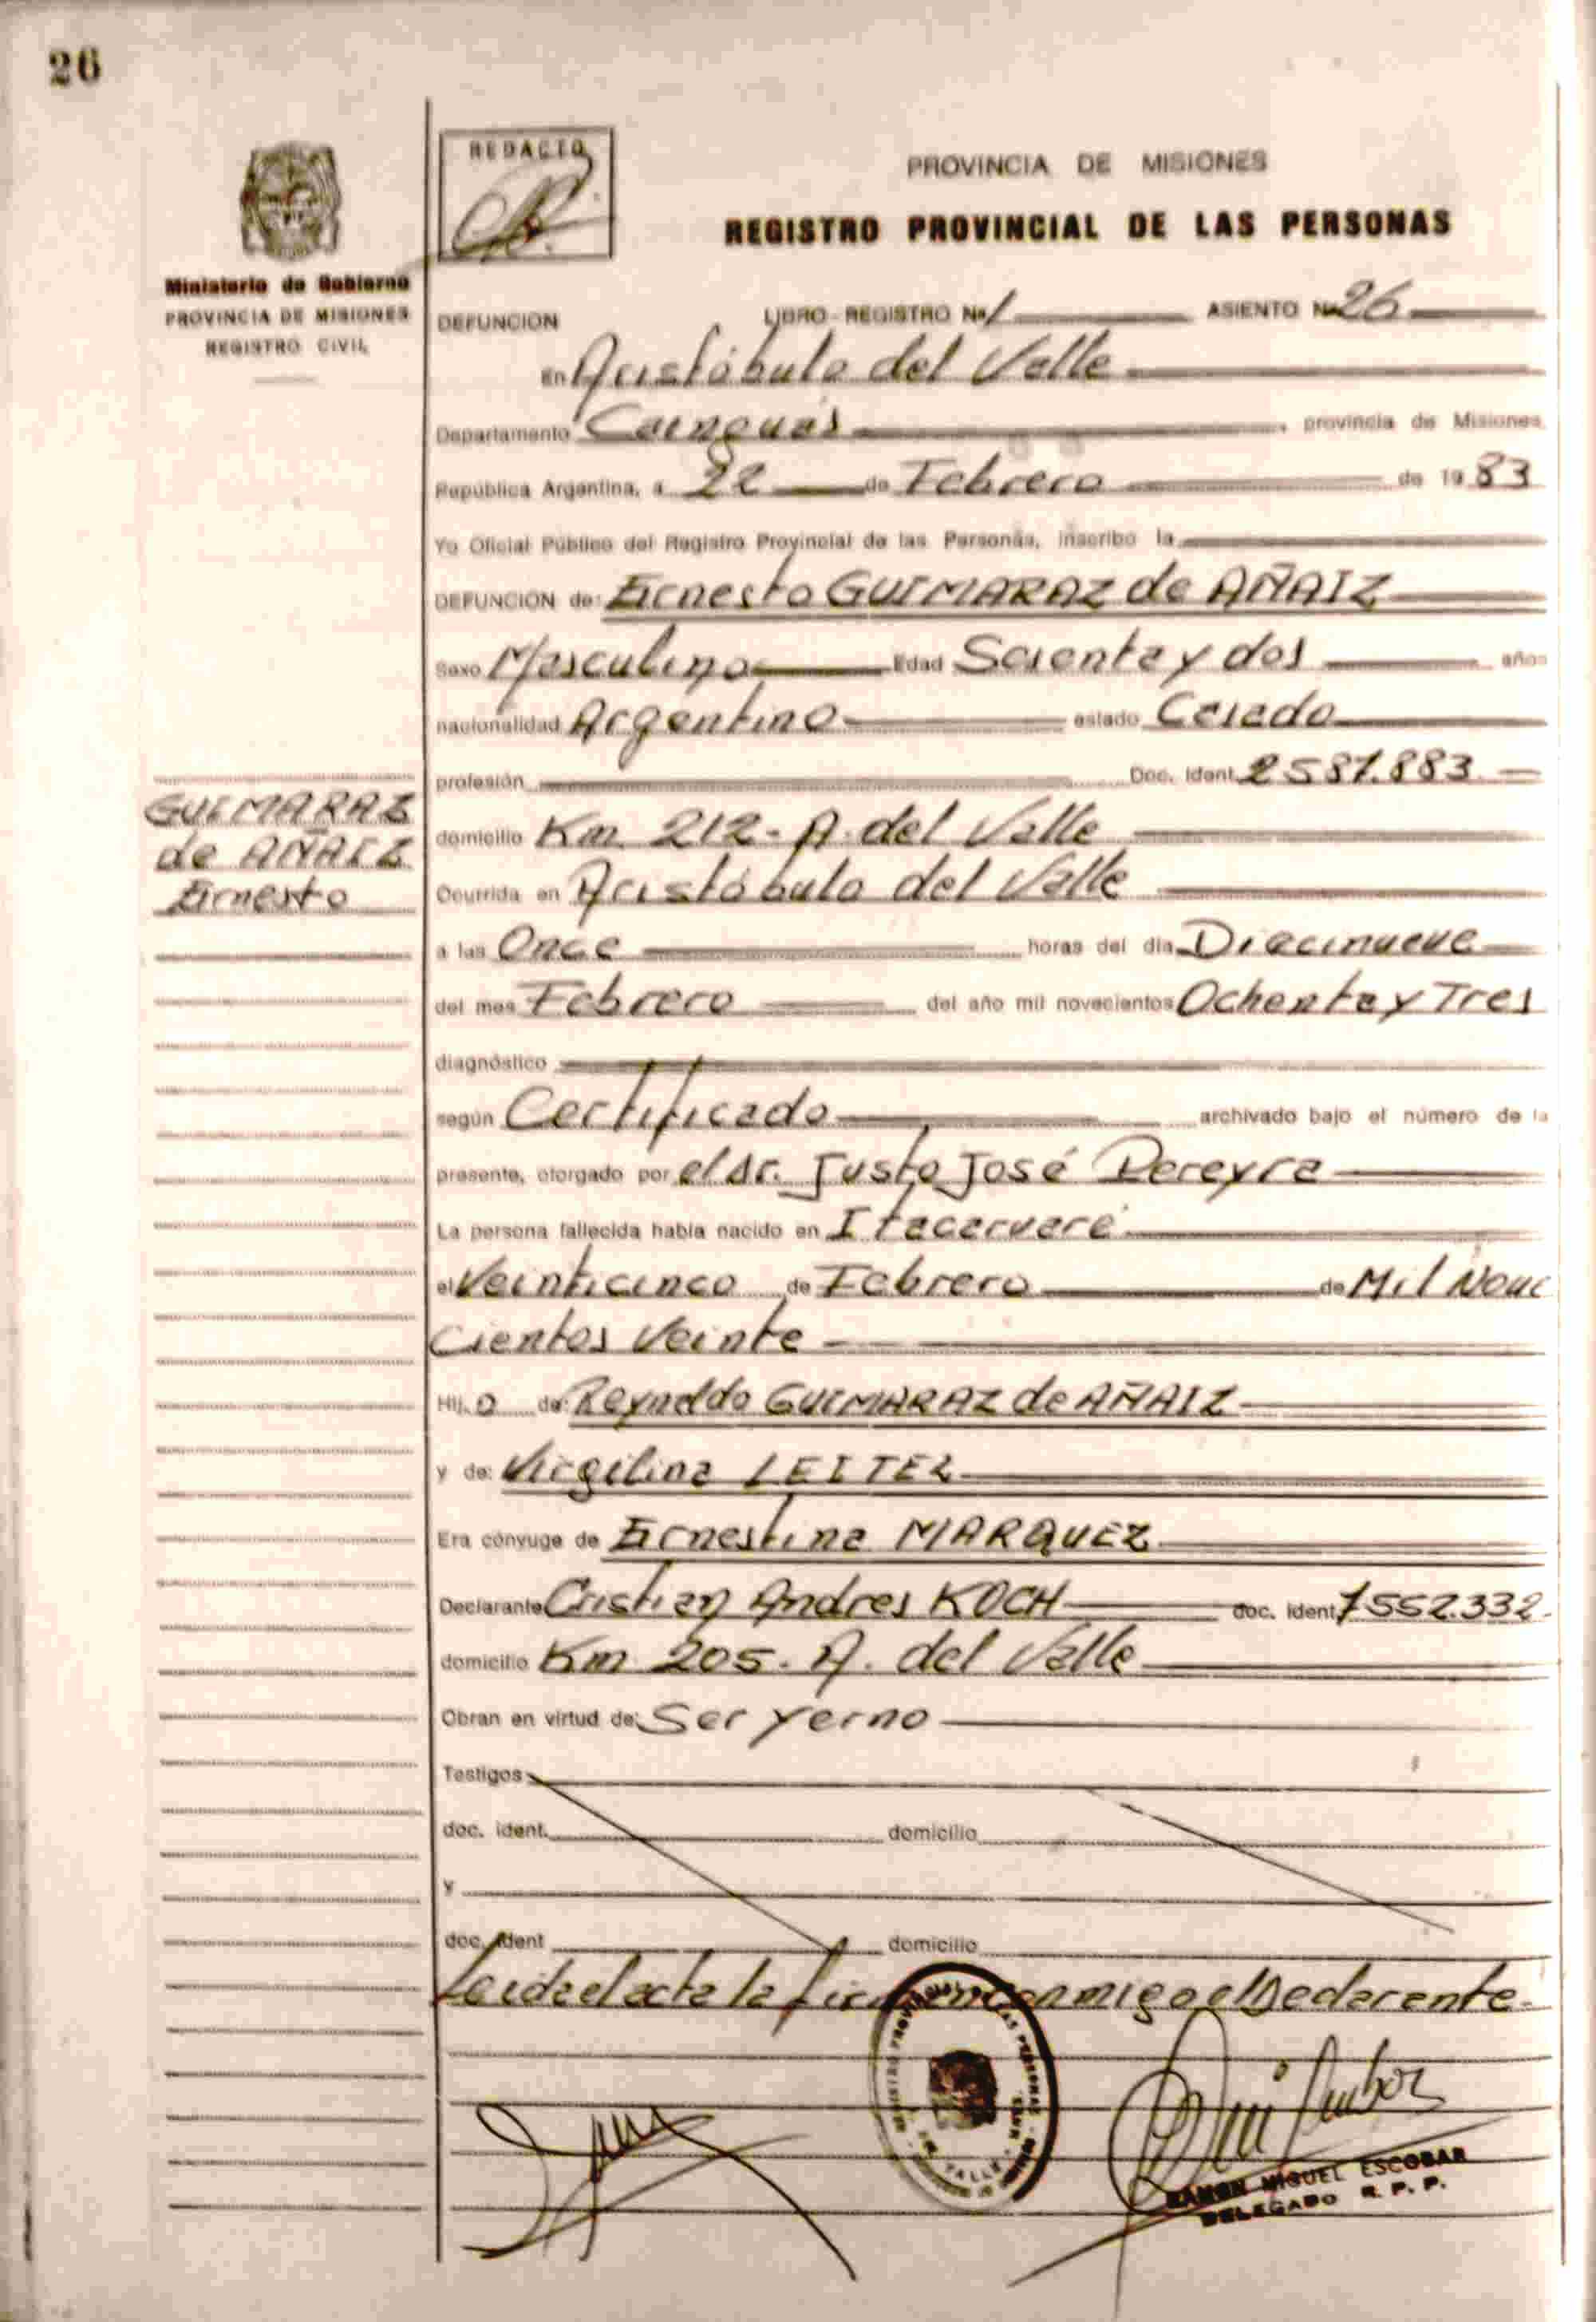 26
REDACTO
PROVINCIA DE MISIONES
REGISTRO PROVINCIAL DE LAS PERSONAS
Ministerio de Gobierno
PROVINCIA DE MISIONES
REGISTRO CIVIL
DEFUNCION LIBRO - REGISTRO Nº 1 ASIENTO Nº 26
En Aristóbulo del Valle
Departamento Cainguás, provincia de Misiones
República Argentina, a 22 de Febrero de 1983
Yo Oficial Público del Registro Provincial de las Personas, inscribo la
DEFUNCION de: Ernesto GUIMARAZ de AÑAIZ
Sexo Masculino Edad Sesenta y dos años
nacionalidad Argentino estado Casado
profesión Doc. Ident. 2581.883
GUIMARAZ
de AÑAIZ
Ernesto
domicilio Km 212 - A. del Valle
Ocurrida en Aristóbulo del Valle
a las Once horas del día Diecinueve
del mes Febrero del año mil novecientos Ochenta y Tres
diagnóstico
según Certificado archivado bajo el número de la
presente, otorgado por el dr. Justo José Pereyra
La persona fallecida había nacido en Itacaruaré
el Veinticinco de Febrero de Mil Nove
cientos Veinte
Hijo de: Reynaldo GUIMARAZ de AÑAIZ
y de: Virgilina LEITEZ
Era cónyuge de Ernestina MARQUEZ
Declarante Cristian Andres KOCH doc. ident. 7552.332
domicilio Km 205 - A. del Valle
Obran en virtud de: Ser yerno
Testigos
doc. ident. domicilio
Y
doc. ident domicilio
Leida el acta la firma conmigo el Declarante.
REGISTRO PROVINCIAL DE LAS PERSONAS
VALLE
RAMON MIGUEL ESCOBAR
DELEGADO R. P. P.